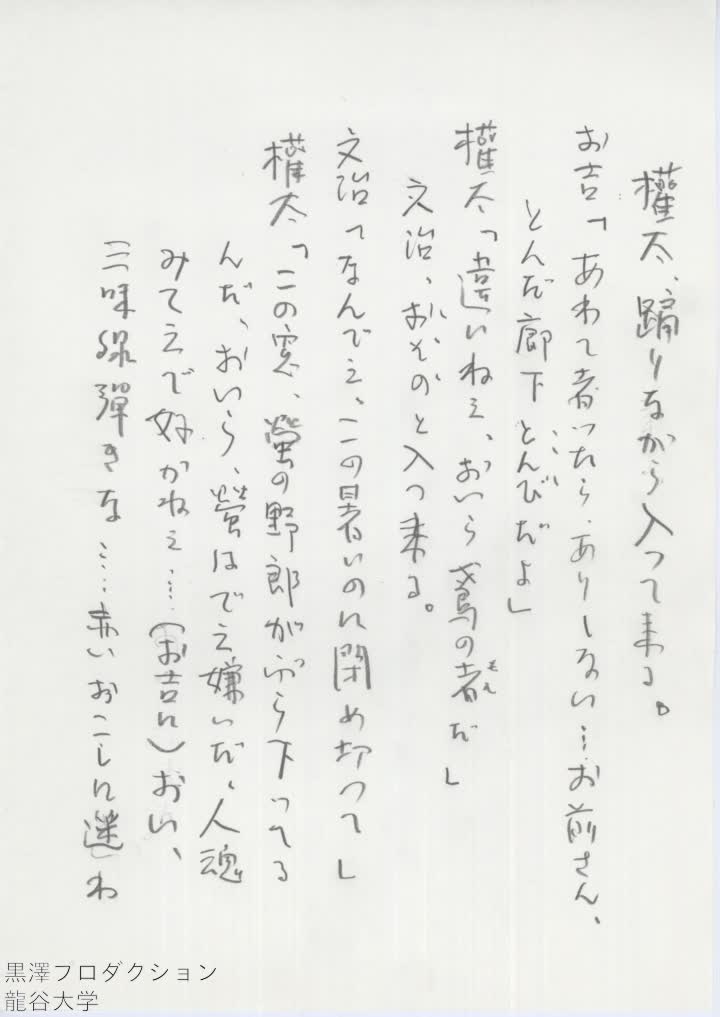 權太、踊りながら入つて来る。
お吉「あわて者つたらありしない…お前さん、
とんだ廊下とんびだよ」
權太「違いねえ、おいら鳶の者だ」
もん
文治、おそのと入つ来る。
文治「なんでえ、この暑いのに閉め切つて」
權太「この窓、螢の野郎がぶら下つてる
んだ、おいら、螢はでえ嫌いだ、人魂
みてえで好かねえ……（お吉に）おい、
三味線彈きな……赤いおこしに迷わ
黒澤プロダクション
龍谷大学